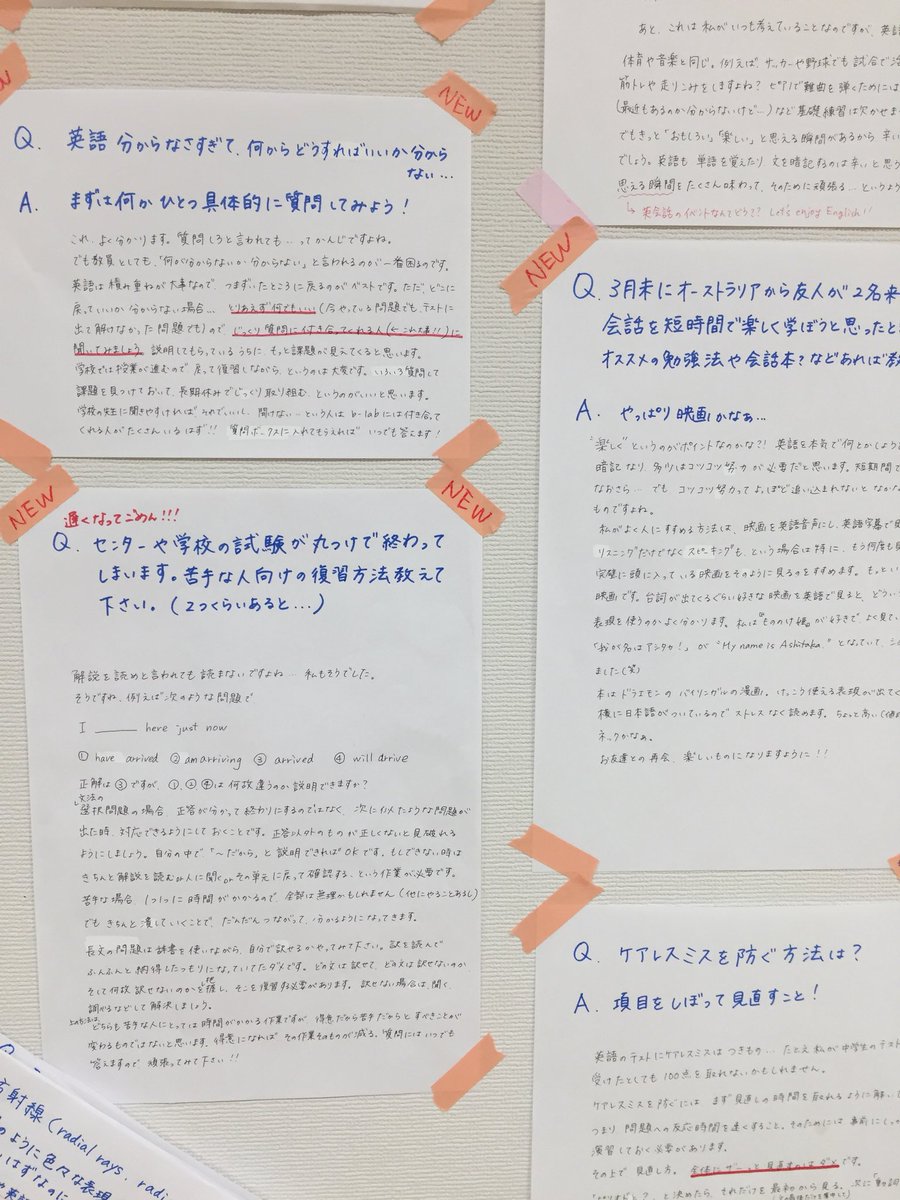 NEW
Q. 英語 分からなさすぎて、何からどうすればいいか分から
ない…
A. まずは何かひとつ具体的に質問してみよう！
これ、よく分かります。質問しろと言われても…ってかんじですよね。
でも教員としても、「何が分からないか分からない」と言われるのが一番困るのです。
英語は積み重ねが大事なので、つまずいたところに戻るのがベストです。ただ、どこに
戻っていいか分からない場合…とりあえず何でもいい（今やっている問題でも、テストに
出て解けなかった問題でも）ので じっくり質問に付き合ってくれる人（←これ大事！！）に
聞いてみましょう。説明してもらっているうちに、もっと課題が見えてくると思います。
学校では授業が進むので戻って復習しながら、というのは大変です。いろいろ質問して
課題を見つけておいて、長期休みでじっくり取り組む、というのがいいと思います。
学校の先生に聞きやすければそれでいいし、聞けない…という人は b-labには付き合って
くれる人がたくさんいるはず！！ 質問ボックスに入れてもらえれば いつでも答えます！
NEW
NEW
遅くなってごめん!!!
Q. センターや学校の試験が丸つけで終わって
しまいます。苦手な人向けの復習方法教えて
下さい。（2つくらいあると…）
解説を読めと言われても読まないですよね… 私もそうでした。
そうですね、例えば次のような問題で
I ______ here just now
① have arrived ② am arriving ③ arrived ④ will arrive
正解は③ですが、①、②、④は何故違うのか説明できますか？
文法の
選択問題の場合、正答が分かって終わりにするのではなく、次に似たような問題が
出た時、対応できるようにしておくことです。正答以外のものが正しくないと見破れる
ようにしましょう。自分の中で、「～だから」と説明できればOKです。もしできない時は
きちんと解説を読むor人に聞くorその単元に戻って確認する、という作業が必要です。
苦手な場合、1つ1つに時間がかかるので、全部は無理かもしれません（他にやることあるし）
でもきちんと潰していくことで、だんだんつながって、分かるようになってきます。
長文の問題は辞書を使いながら、自分で訳せるかやってみて下さい。訳を読んで
ふんふんと納得したつもりになっていてはダメです。どの文は訳せて、どの文は訳せないのか、
そして何故訳せないのかを把握し、そこを復習する必要があります。訳せない場合は聞く、
調べるなどして解決しましょう。
上の方法は、どちらも苦手な人にとっては時間がかかる作業ですが、得意だから苦手だからとすべきことが
変わるものではないと思います。得意になれば、その作業そのものが減る。質問にはいつでも
答えますので、頑張ってみて下さい！！
あと、これは私がいつも考えていることなのですが、英語
体育や音楽と同じ。例えば、サッカーや野球でも試合で活
筋トレや走りこみをしますよね？ ピアノで難曲を弾くためには
（最近もあるのか分からないけど…）など基礎練習は欠かせま
でもきっと「おもしろい」「楽しい」と思える瞬間があるから辛い
でしょう。英語も 単語を覚えたり 文を暗記するのは辛いと思う
思える瞬間をたくさん味わって、そのために頑張る…というよう
↳ 英会話のイベントなんてどう？ Let's enjoy English!!
NEW
Q. 3月末にオーストラリアから友人が2名来
会話を短時間で楽しく学ぼうと思ったと
オススメの勉強法や会話本？などあれば教
A. やっぱり映画かなぁ…
"楽しく"というのがポイントなのかな？！ 英語を本気で何とかしよう
暗記なり、多少はコツコツ努力が必要だと思います。短期間で
なおさら… でも コツコツ努力ってよっぽど追い込まれないと なかな
ものですよね。
私がよく人にすすめる方法は、映画を英語音声にし、英語字幕で
リスニングだけでなくスピーキングも、という場合は特に、もう何度も
完璧に頭に入っている映画をそのように見るのをすすめます。もっとい
映画です。台詞が出てくるぐらい好きな映画を英語で見ると、どうい
表現を使うのかよく分かります。私は『もののけ姫』が好きで、よく見てい
「我が名はアシタカ！」が "My name is Ashitaka." となっていて、
ました(笑)
本はドラえもんのバイリンガルの漫画。けっこう使える表現が出てく
横に日本語がついているのでストレスなく読めます。ちょっと高い
ネックかなぁ。
お友達との再会、楽しいものになりますように！！
Q. ケアレスミスを防ぐ方法は？
A. 項目をしぼって見直すこと！
英語のテストにケアレスミスはつきもの… たとえ私が中学生のテス
受けたとしても100点を取れないかもしれません。
ケアレスミスを防ぐには まず見直しの時間を取れるように解い
つまり、問題への反応時間を速くすること。そのためには 事前に
演習しておく必要があります。
その上で 見直し方。全体にザーッと見直すのはダメです。
と決めたら、それだけを最初から見る。次に動詞
射線（radial rays,
のように色々な表現